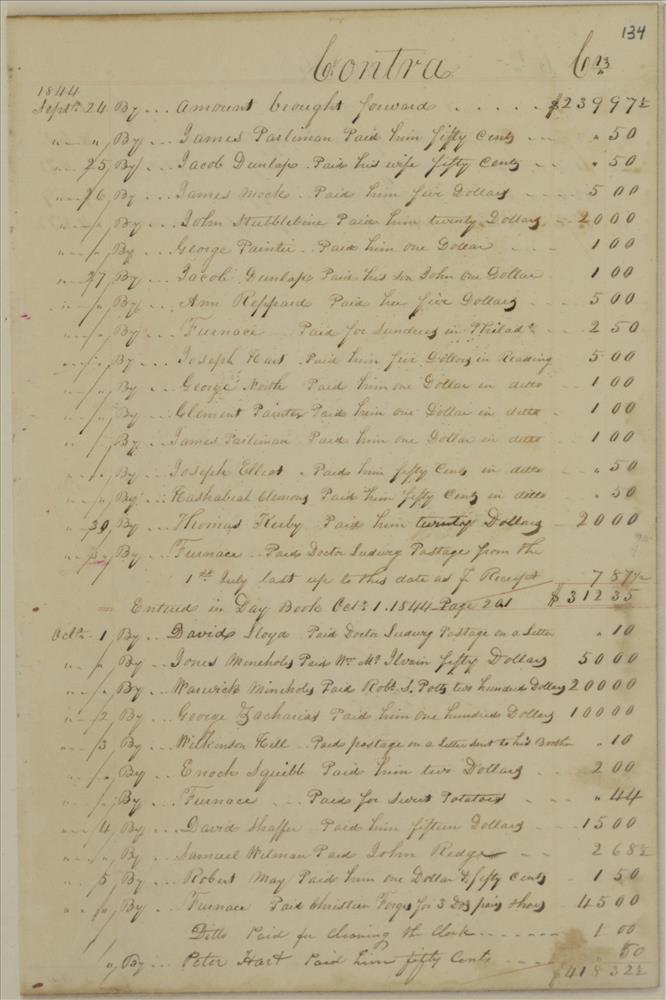 134
Contra Crs
1844
Septr. 24 By ... Amount brought forward ..... $239 97½
" " " By ... James Parliman Paid him fifty Cents .. " 50
" " 25 By ... Jacob Dunlap .. Paid his wife fifty Cents .. " 50
" " 26 By ... James Mock .. Paid him five Dollars ... 5 00
" " " By ... John Stubblebine Paid him twenty Dollars .. 20 00
" " " By ... George Painter .. Paid him one Dollar ... 1 00
" " 27 By ... Jacob Dunlap Paid his son John one Dollar 1 00
" " " By ... Ann Reppard Paid her five Dollars ... 5 00
" " " By ... Furnace Paid for Sundries in Philada. ... 2 50
" " " By ... Joseph Hart Paid him five Dollars in Reading 5 00
" " " By ... George North Paid him one Dollar in ditto .. 1 00
" " " By ... Clement Painter Paid him one Dollar in ditto . 1 00
" " " By ... James Parliman Paid him one Dollar in ditto 1 00
" " " By ... Joseph Elliot . Paid him fifty Cents in ditto .. " 50
" " " By ... Hashabiah Clemons Paid him fifty Cents in ditto " 50
" 30 By ... Thomas Kerby Paid him twenty Dollars .. 20 00
" " " By ... Furnace .. Paid Doctor Ludwig Postage from the
1st July last up to this date as pr Receipt 7 87½
= Entered in Day Book Octr. 1. 1844 Page 201 $312 35
Octr. 1 By ... Davids Lloyd Paid Doctor Ludwig Postage on a Letter " 10
" " " By ... Jones Mineholes Paid Wm. Mc.Ilvain fifty Dollars 50 00
" " " By ... Warwick Mineholes Paid Robt. S. Potts two hundred Dollars 200 00
" " 2 By ... George Zacharias Paid him one hundred Dollars 100 00
" " 3 By ... Wilkinson Hill .. Paid postage on a letter sent to his Brother " 10
" " " By ... Enoch Squibb Paid him two Dollars ... 2 00
" " " By ... Furnace ... Paid for Sweet Potatoes ... " 44
" " 4 By ... David Shaffer Paid him fifteen Dollars ... 15 00
" " " By ... Samuel Wilman Paid John Redge .. 2 68½
" " 5 By ... Robert May Paid him one Dollar & fifty Cents . 1 50
" " " By ... Furnace Paid Christian Forge for 3 Doz pairs Shoes .. 45 00
Ditto Paid for cleaning the Clock ....... 1 00
" By ... Peter Hart Paid him fifty Cents .... 50
$418 32½